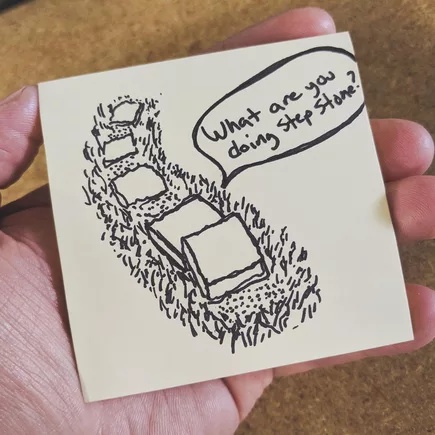 What are you
doing step stone?